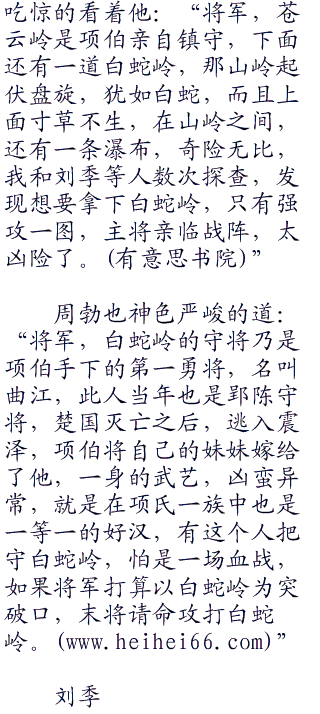 吃惊的看着他：“将军，苍
云岭是项伯亲自镇守，下面
还有一道白蛇岭，那山岭起
伏盘旋，犹如白蛇，而且上
面寸草不生，在山岭之间，
还有一条瀑布，奇险无比，
我和刘季等人数次探查，发
现想要拿下白蛇岭，只有强
攻一图，主将亲临战阵，太
凶险了。(有意思书院)”
周勃也神色严峻的道：
“将军，白蛇岭的守将乃是
项伯手下的第一勇将，名叫
曲江，此人当年也是郢陈守
将，楚国灭亡之后，逃入震
泽，项伯将自己的妹妹嫁给
了他，一身的武艺，凶蛮异
常，就是在项氏一族中也是
一等一的好汉，有这个人把
守白蛇岭，怕是一场血战，
如果将军打算以白蛇岭为突
破口，末将请命攻打白蛇
岭。(www.heihei66.com)”
刘季